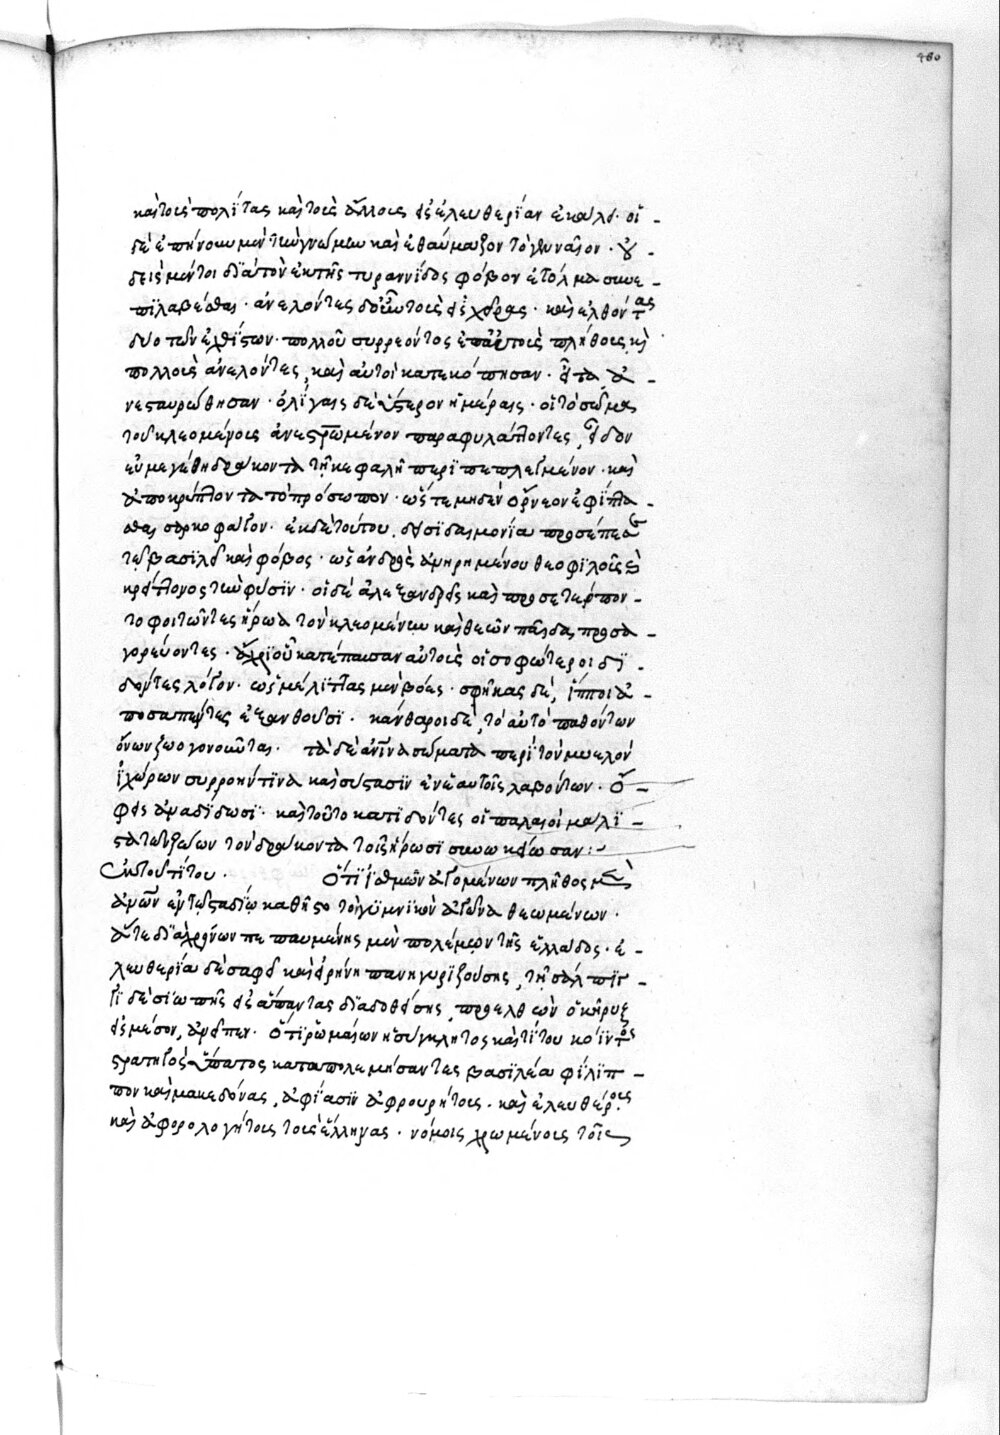 460
καὶ τοὺς πολίτας καὶ τοὺς ἄλλους εἰς ἐλευθερίαν ἐκάλει· οἱ
δὲ ἐπῄνουν μὲν τὴν γνώμην καὶ ἐθαύμαζον τὸ γενναῖον· οὐ
δεὶς μέντοι διὰ τὸν ἐκ τῆς τυραννίδος φόβον ἐτόλμα συνε
πιλαβέσθαι· ἀνελόντες δὲ αὐτοὺς ἐχθρας· καὶ ἐλθόντας
δύο τῶν ἐχθίστων· πολλοῦ συρρέοντος ἐπ' αὐτοὺς πλήθους, καὶ
πολλοὺς ἀνελόντες, καὶ αὐτοὶ κατεκόπησαν· εἶτα ἀ
νεσταυρώθησαν· ὀλίγαις δὲ ὕστερον ἡμέραις· οἱ τὸ σῶμα
τοῦ κλεομένους ἀνεσταυρωμένον παραφυλάττοντες, εἶδον
εὐμεγέθη δράκοντα τῇ κεφαλῇ περιπεπλεγμένον· καὶ
ἀποκρύπτοντα τὸ πρόσωπον· ὥστε μηδὲν ὄρνεον ἐφίπτα
σθαι σαρκοφάγον· ἐκ δὲ τούτου, δεισιδαιμονία προσέπεσε
τῷ βασιλεῖ καὶ φόβος· ὡς ἀνδρὸς ἀνῃρημένου θεοφιλοῦς καὶ
κρείττονος τὴν φύσιν· οἱ δὲ ἀλεξανδρεῖς καὶ προσετρέπον
το φοιτῶντες ἥρωα τὸν κλεομένην καὶ θεῶν παῖδα προσα
γορεύοντες· ἄχρι οὗ κατέπαυσαν αὐτοὺς οἱ σοφώτεροι δι
δόντες λόγον· ὡς μελίττας μὲν βόες· σφῆκας δὲ, ἵπποι ἀ
ποσαπέντες ἐξανθοῦσι· κάνθαροι δὲ, τὸ αὐτὸ παθόντων
ὄνων ζωογονοῦνται· τὰ δὲ ἀνθρώπινα σώματα περὶ τὸν μυελὸν
ἰχώρων συρροήν τινα καὶ σύστασιν ἐν ἑαυτοῖς λαβόντων· ὄ
φεις ἀναδίδωσι· καὶ τοῦτο κατιδόντες οἱ παλαιοὶ μάλι
στα τῶν ζώων τὸν δράκοντα τοῖς ἥρωσι συνωκείωσαν:
ἐκ τοῦ τίτου· Ὅτι ἰσθμίων ἀγομένων πλῆθος μὲν
ἀνθρώπων ἐν τῷ σταδίῳ καθῆστο τὸν γυμνικὸν ἀγῶνα θεωμένων·
ἅτε διὰ χρόνων πεπαυμένης μὲν πολέμων τῆς ἑλλάδος· ἐ
λευθερία δὲ σαφεῖ καὶ εἰρήνῃ πανηγυριζούσης, τῇ σάλπιγ
γι δὲ σιωπῆς εἰς ἅπαντας διαδοθείσης, προελθὼν ὁ κῆρυξ
εἰς μέσον, ἀνεῖπεν· ὅτι ῥωμαίων ἡ σύγκλητος καὶ τίτος κοΐντιος
στρατηγὸς ὕπατος καταπολεμήσαντες βασιλέα φίλιπ
πον καὶ μακεδόνας, ἀφιᾶσιν ἀφρουρήτους· καὶ ἐλευθέρους
καὶ ἀφορολογήτους τοὺς ἕλληνας· νόμοις χρωμένους τοῖς